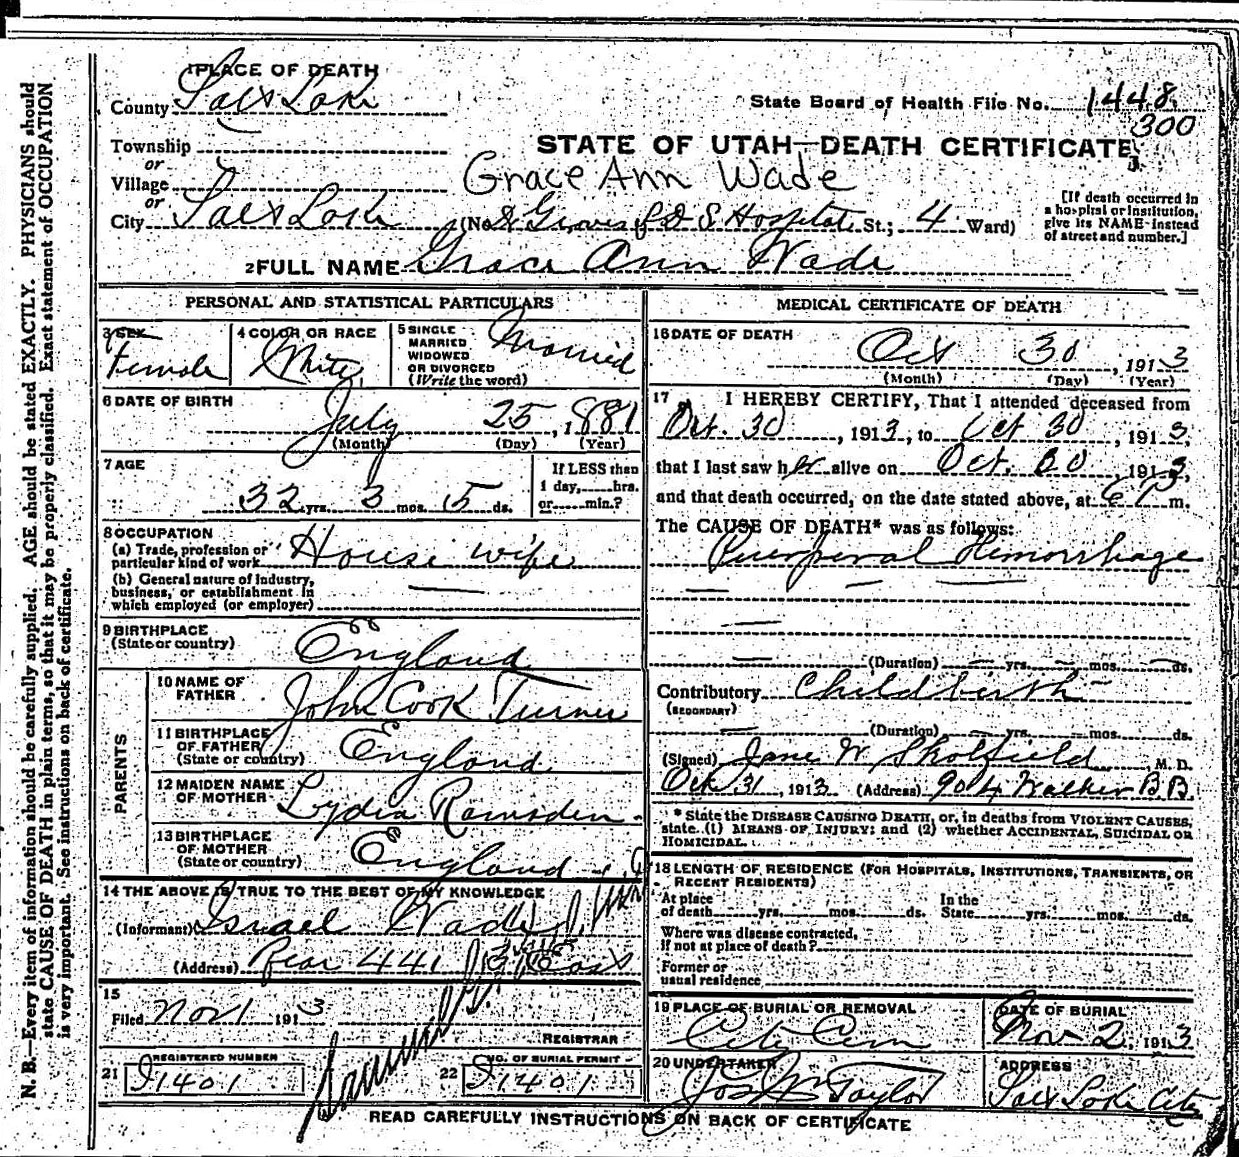 1 PLACE OF DEATH
County Salt Lake
State Board of Health File No. 1448
300
Township
or
Village
or
City Salt Lake
STATE OF UTAH—DEATH CERTIFICATE
Grace Ann Wade
(No. Groves L D S Hospital St.; 4 Ward)
[If death occurred in
a hospital or institution,
give its NAME instead
of street and number.]
2 FULL NAME Grace Ann Wade
PERSONAL AND STATISTICAL PARTICULARS
3 SEX
Female
4 COLOR OR RACE
White
5 SINGLE
MARRIED
WIDOWED
OR DIVORCED
(Write the word)
Married
6 DATE OF BIRTH
July 25, 1881
(Month) (Day) (Year)
7 AGE
32 yrs. 3 mos. 5 ds.
If LESS than
1 day, hrs.
or min.?
8 OCCUPATION
(a) Trade, profession or
particular kind of work House wife
(b) General nature of Industry,
business, or establishment in
which employed (or employer)
9 BIRTHPLACE
(State or country)
England
PARENTS
10 NAME OF
FATHER
John Cook Turner
11 BIRTHPLACE
OF FATHER
(State or country)
England
12 MAIDEN NAME
OF MOTHER
Lydia Ramsden
13 BIRTHPLACE
OF MOTHER
(State or country)
England
14 THE ABOVE IS TRUE TO THE BEST OF MY KNOWLEDGE
(Informant) Israel Wade
(Address) Rear 441 East
15
Filed Nov 1 1913
REGISTRAR
21 REGISTERED NUMBER
I1401
22 NO. OF BURIAL PERMIT
I1401
MEDICAL CERTIFICATE OF DEATH
16 DATE OF DEATH
Oct 30, 1913
(Month) (Day) (Year)
17 I HEREBY CERTIFY, That I attended deceased from
Oct. 30, 1913, to Oct 30, 1913,
that I last saw her alive on Oct. 30, 1913,
and that death occurred, on the date stated above, at 6 P m.
The CAUSE OF DEATH* was as follows:
Puerperal Hemorrhage
(Duration) yrs. mos. ds.
Contributory Childbirth
(SECONDARY)
(Duration) yrs. mos. ds.
(Signed) Jane W. Skolfield, M. D.
Oct 31, 1913 (Address) 904 Walker B.B.
* State the DISEASE CAUSING DEATH, or, in deaths from VIOLENT CAUSES,
state (1) MEANS OF INJURY; and (2) whether ACCIDENTAL, SUICIDAL OR
HOMICIDAL.
18 LENGTH OF RESIDENCE (FOR HOSPITALS, INSTITUTIONS, TRANSIENTS, OR
RECENT RESIDENTS)
At place
of death yrs. mos. ds.
In the
State yrs. mos. ds.
Where was disease contracted,
if not at place of death?
Former or
usual residence
19 PLACE OF BURIAL OR REMOVAL
City Cem
DATE OF BURIAL
Nov 2, 1913
20 UNDERTAKER
Jos Wm Taylor
ADDRESS
Salt Lake City
READ CAREFULLY INSTRUCTIONS ON BACK OF CERTIFICATE
N. B.—Every item of information should be carefully supplied. AGE should be stated EXACTLY. PHYSICIANS should
state CAUSE OF DEATH in plain terms, so that it may be properly classified. Exact statement of OCCUPATION
is very important. See instructions on back of certificate.